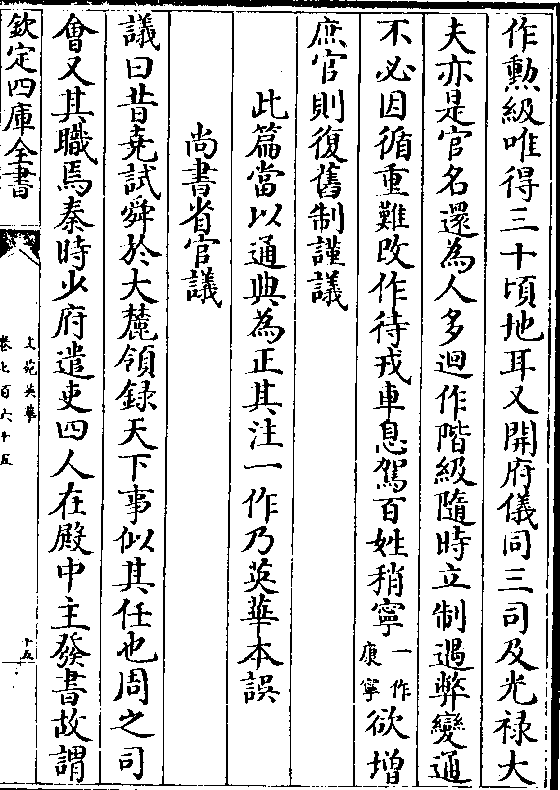 作勲級唯得三十頃地耳又開府儀同三司及光禄大
夫亦是官名還為人多迴作階級隨時立制遇弊變通
不必因循重難改作待戎車息駕百姓稍寧一作康寧欲増
庶官則復舊制謹議
此篇當以通典為正其注一作乃英華本誤
尚書省官議
議曰昔堯試舜於大麓領録天下事似其任也周之司
會又其職焉秦時少府遣吏四人在殿中主發書故謂
欽定四庫全書
文苑英華
卷七百六十五
十五